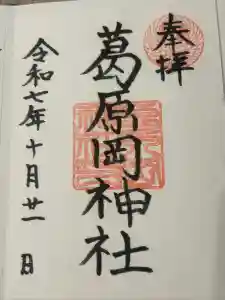 奉拝
葛原岡神社
令和七年十月廿一日